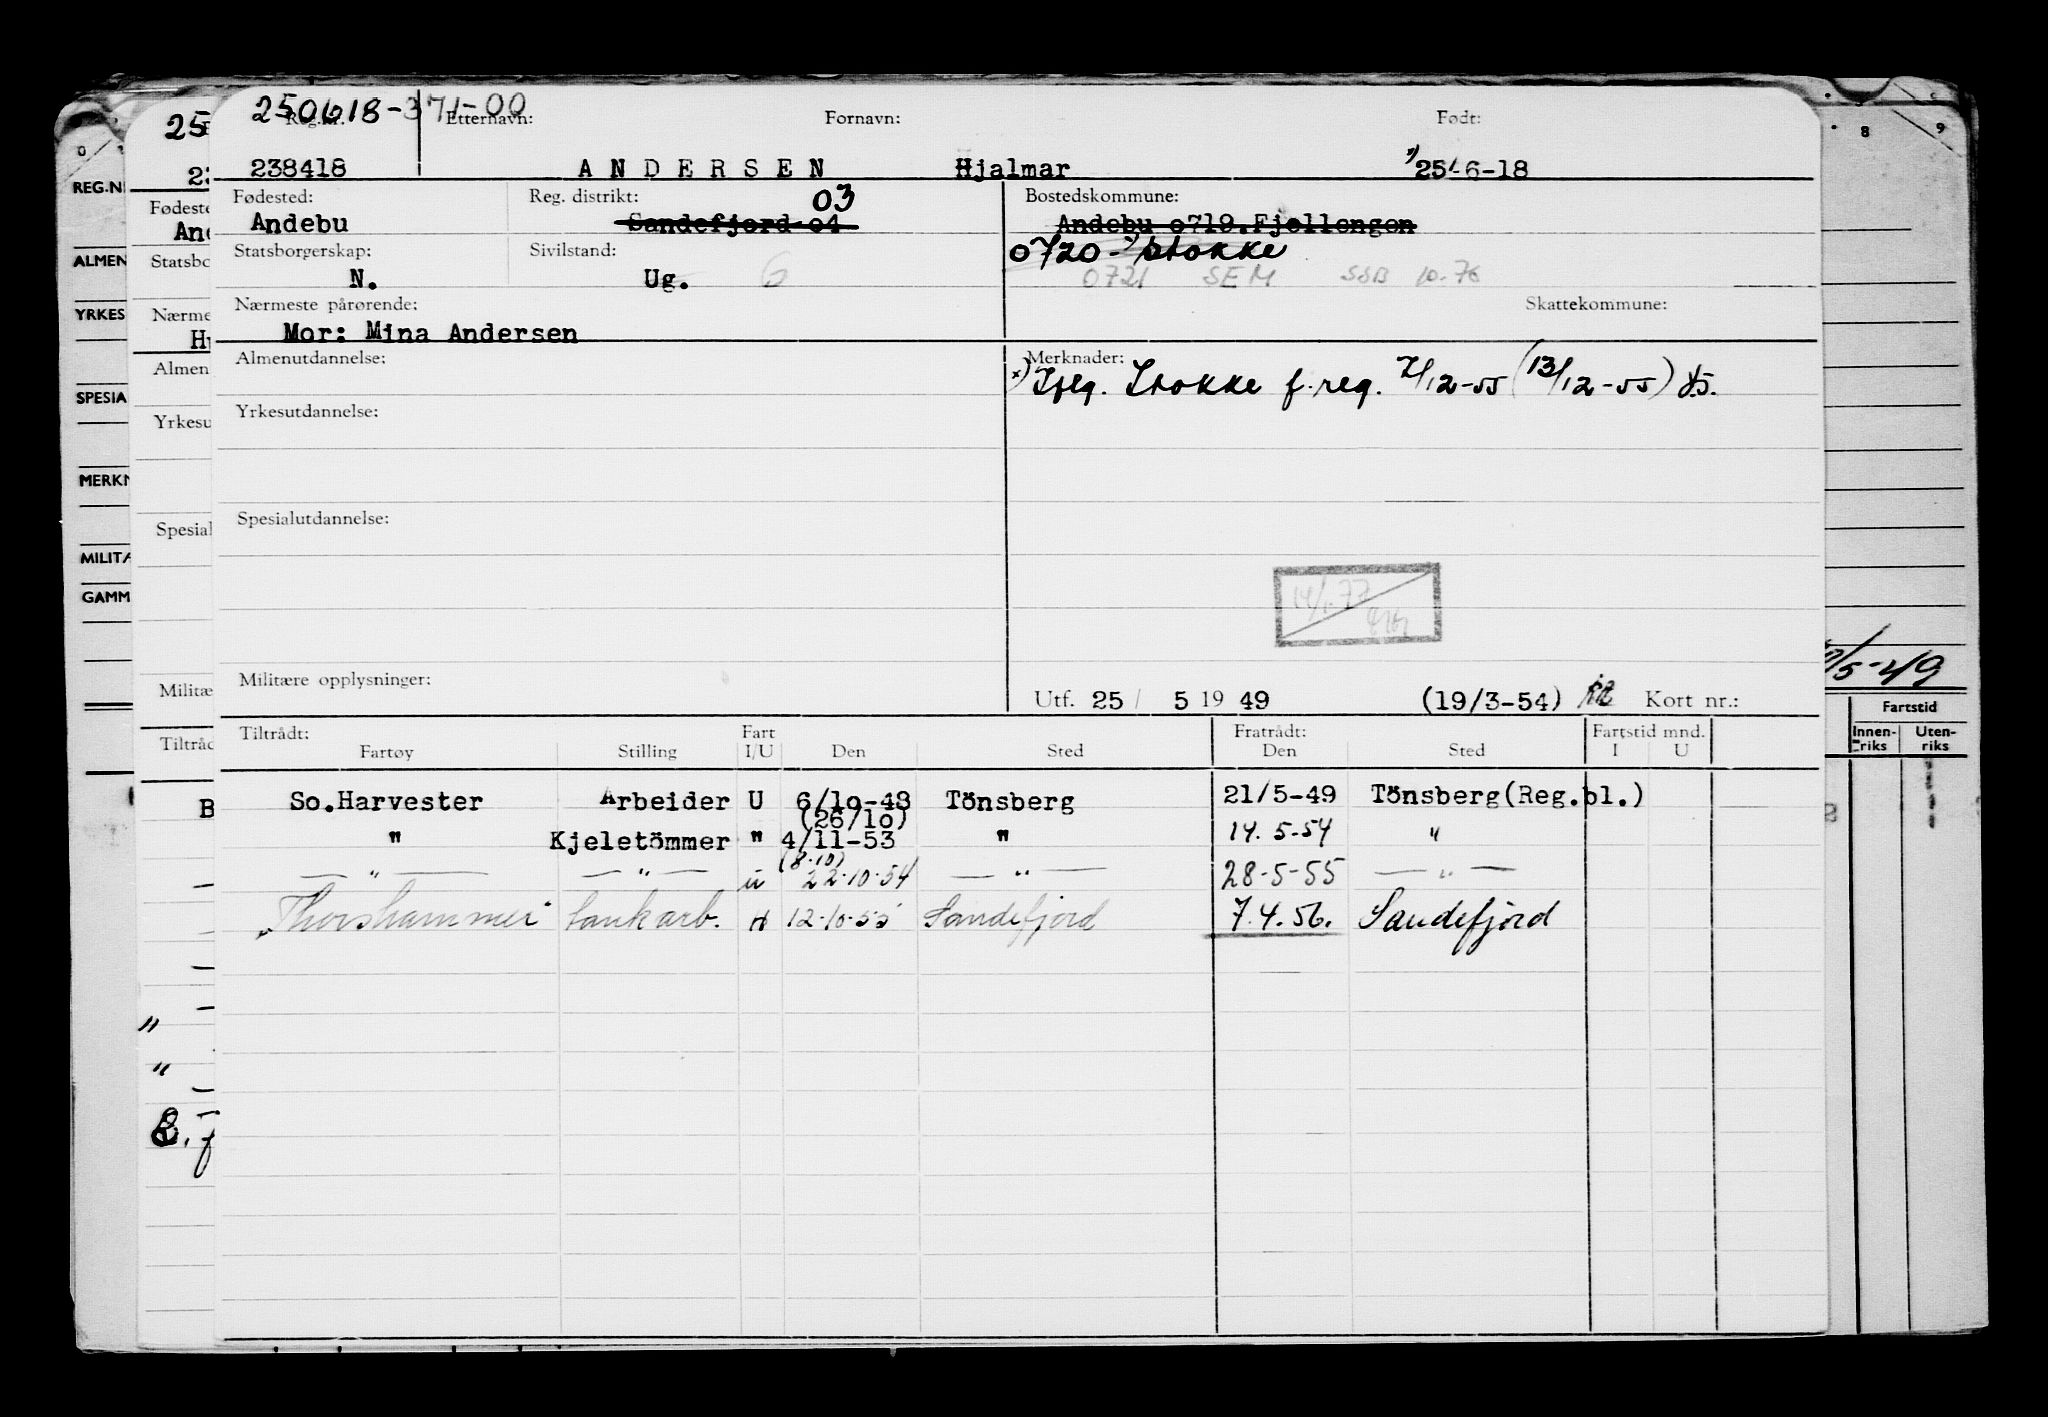 250618-371-00
Reg.nr. Etternavn: Fornavn: Født:
238418 ANDERSEN Hjalmar 25-6-18
Fødested: Reg. distrikt: 03 Bostedskommune:
Andebu Sandefjord o4 Andebu o719.Fjellengen
0720 - Stokke
Statsborgerskap: Sivilstand:
N. Ug. 6 0721 SEM SSB 10.76
Nærmeste pårørende: Skattekommune:
Mor: Mina Andersen
Almenutdannelse: Merknader:
x) Ifлg. Stokke f.reg. 7/12-55 (13/12-55)
Yrkesutdannelse:
Spesialutdannelse:
14/1.77
Militære opplysninger:
Utf. 25/ 5 19 49 (19/3-54) Kort nr.:
Tiltrådt: Fart Fratrådt: Fartstid mnd.
Fartøy Stilling I/U Den Sted Den Sted I U
So.Harvester Arbeider U 6/lo-48 Tönsberg 21/5-49 Tönsberg(Reg.bl.)
(26/lo)
" Kjeletömmer " 4/11-53 " 14.5-54 "
(8.10)
— " — — " — u 22.10.54 — " — 28-5-55 — " —
"Thorshammer" tankarb. U 12-10-55 Sandefjord 7.4.56. Sandefjord
25
REG.N
Fødeste
And
ALMEN
Statsbo
YRKES
Nærme
Hu
Almen
SPESIA
Yrkesu
MERKN
Spesial
MILITÆ
GAMM
Militæ
Tiltråd
B
"
"
8 9
/5-49
Fartstid
Innen-riks Uten-riks